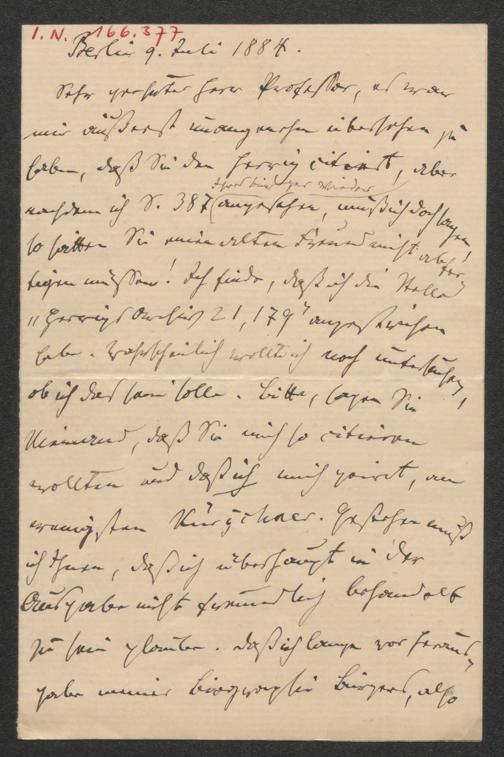 I. N. 166.377
Berlin 9. Juli 1884.
Sehr geehrter Herr Professor, es war
mir äußerst unangenehm übersehen zu
haben, daß Sie den Herrig citirt, aber
wieder
nachdem ich S. 387 angesehen, muß ich doch sagen
so hätten Sie einen alten Freund nicht
tigen müssen! Ich finde, daß ich die Stelle
„Herrigs Archiv 21, 179" angestrichen
habe. Wahrscheinlich wollte ich noch untersuchen,
ob ich das sein solle. Bitte, sagen Sie
Niemand, daß Sie mich so citieren
wollten und daß ich mich geirrt, am
wenigsten Kürschner. Gestehen muß
ich Ihnen, daß ich überhaupt in der
Ausgabe nicht freundlich behandelt
zu sein glaube. Daß ich lange vor Heraus-
gabe meiner Biographie Bürgers, also